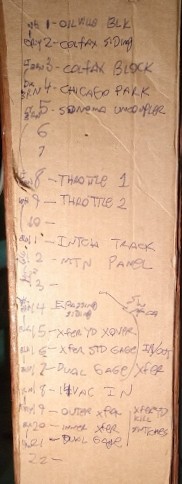 1-OILVILLE BLK
2-COLFAX SIDING
3-COLFAX BLOCK
4-CHICAGO PARK
5-SONOMA UNCOUPLER
6
7
8-THROTTLE 1
9-THROTTLE 2
10-
1-INTCH TRACK
2-MTN PANEL
3-
4-
5-XFER YD XOVER
6-XFER STD GAGE IN/OUT
7-DUAL GAGE/XFER
8-14VAC IN
19-OUTER XFER XFER YD
20-INNER XFER KILL
21-DUAL GAGE SWITCHES
22-